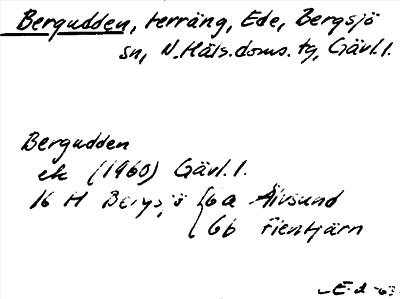 Bergudden, terräng, Ede, Bergsjö
sn, N. Häls. doms. tg, Gävl. l.
Bergudden
ek (1960) Gävl. l.
16 H Bergsjö 6a Älvsund
6b Fientjärn